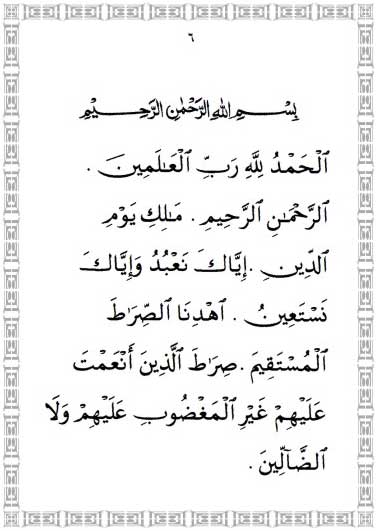 ٦
بِسْــمِ اللهِ الرَّحْمٰنِ الرَّحِــيْمِ
ٱلْحَمْدُ لِلَّهِ رَبِّ ٱلْعَـٰلَمِينَ .
ٱلرَّحْمَـٰنِ ٱلرَّحِيمِ . مَـٰلِكِ يَوْمِ
ٱلدِّينِ . إِيَّاكَ نَعْبُدُ وَإِيَّاكَ
نَسْتَعِينُ . ٱهْدِنَا ٱلصِّرَٰطَ
ٱلْمُسْتَقِيمَ . صِرَٰطَ ٱلَّذِينَ أَنْعَمْتَ
عَلَيْهِمْ غَيْرِ ٱلْمَغْضُوبِ عَلَيْهِمْ وَلَا
ٱلضَّآلِّينَ .